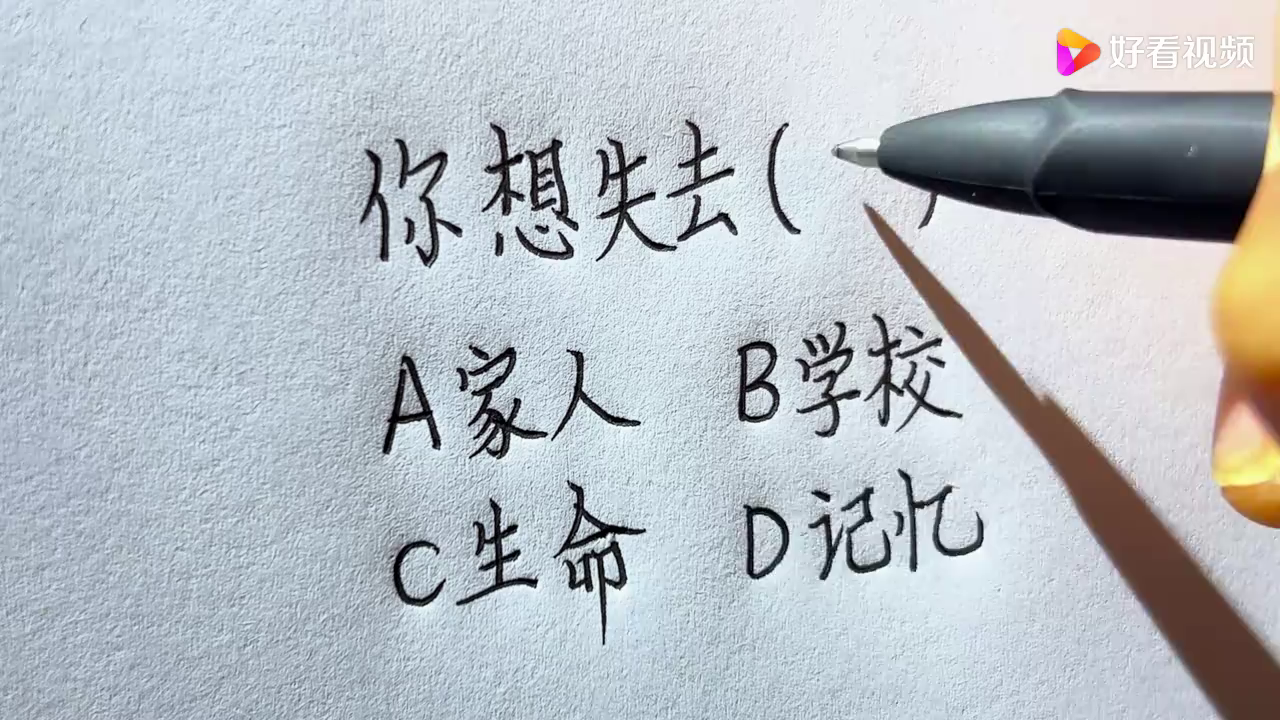 好看视频
你想失去( )
A家人 B学校
C生命 D记忆